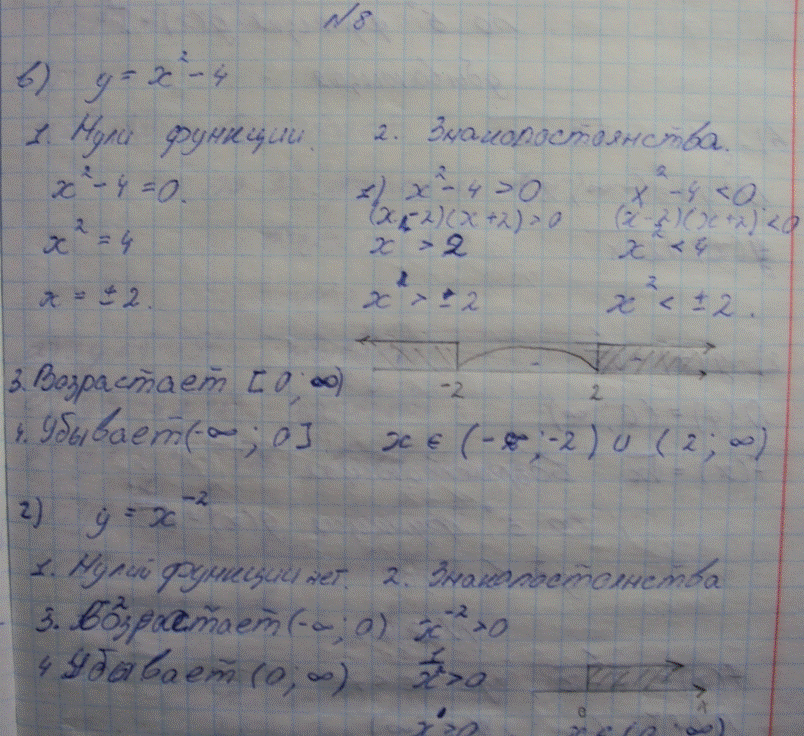 №8
в) y = x² - 4
1. Нули функции.
x² - 4 = 0.
x² = 4
x = ± 2.
2. Знакопостоянства.
1) x² - 4 > 0
(x - 2)(x + 2) > 0
x > 2
x² > ± 2
x² - 4 < 0.
(x - 2)(x + 2) < 0
x² < 4
x² < ± 2.
-2 - 2
3. Возрастает [0; ∞)
4. Убывает (-∞; 0]
x ∈ (-∞; -2) ∪ (2; ∞)
г) y = x⁻²
1. Нулий функции нет.
2. Знакопостоянства
3. Возрастает (-∞; 0)
4 Убывает (0; ∞)
x⁻² > 0
1/x² > 0
0 x
x > 0
x ∈ (0; ∞)